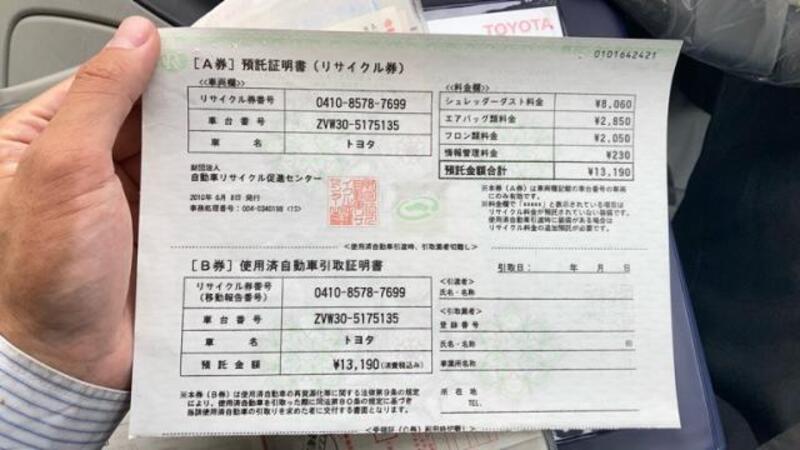 TOYOTA
0101642421
[A券] 預託証明書(リサイクル券)
<<車両欄>>
リサイクル券番号 0410-8578-7699
車台番号 ZVW30-5175135
車名 トヨタ
<<料金欄>>
シュレッダーダスト料金 ¥8,060
エアバッグ類料金 ¥2,850
フロン類料金 ¥2,050
情報管理料金 ¥230
預託金額合計 ¥13,190
財団法人
自動車リサイクル促進センター
2010年 6月 8日 発行
事務処理番号:004-0340198
※本券(A券)は車両欄記載の車台番号の車両
にのみ有効です。
※料金欄で「*****」と表示されている項目は
リサイクル料金が預託されていない装備です。
使用済自動車引渡時に装備がある場合は
リサイクル料金の追加預託が必要です。
<使用済自動車引渡時、引取業者切離し>
[B券] 使用済自動車引取証明書
引取日: 年 月 日
リサイクル券番号
(移動報告番号) 0410-8578-7699
車台番号 ZVW30-5175135
車名 トヨタ
預託金額 ¥13,190(消費税込み)
<引渡者>
氏名・名称
<引取業者>
登録番号
氏名・名称 印
事業所名称
所在地
TEL.
※本券(B券)は使用済自動車の再資源化等に関する法律第9条の規定
により、使用済自動車を引取った際に同法第80条の規定に基づき
当該使用済自動車の引取りを求めた者に交付する書面となります。